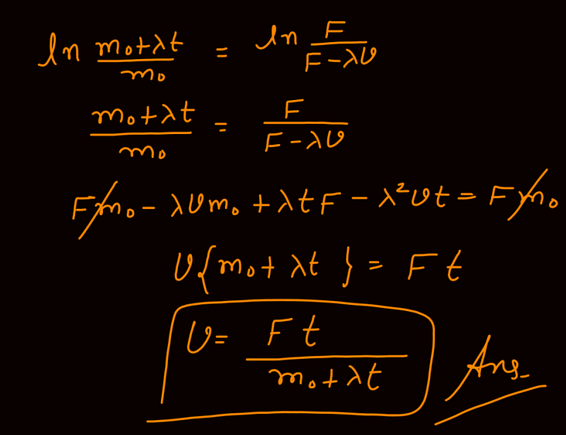 ln (m₀+λt)/m₀ = ln F/(F-λv)
(m₀+λt)/m₀ = F/(F-λv)
Fm₀ - λvm₀ + λtF - λ²vt = Fm₀
v{m₀+λt} = Ft
v = Ft/(m₀+λt)
Ans.